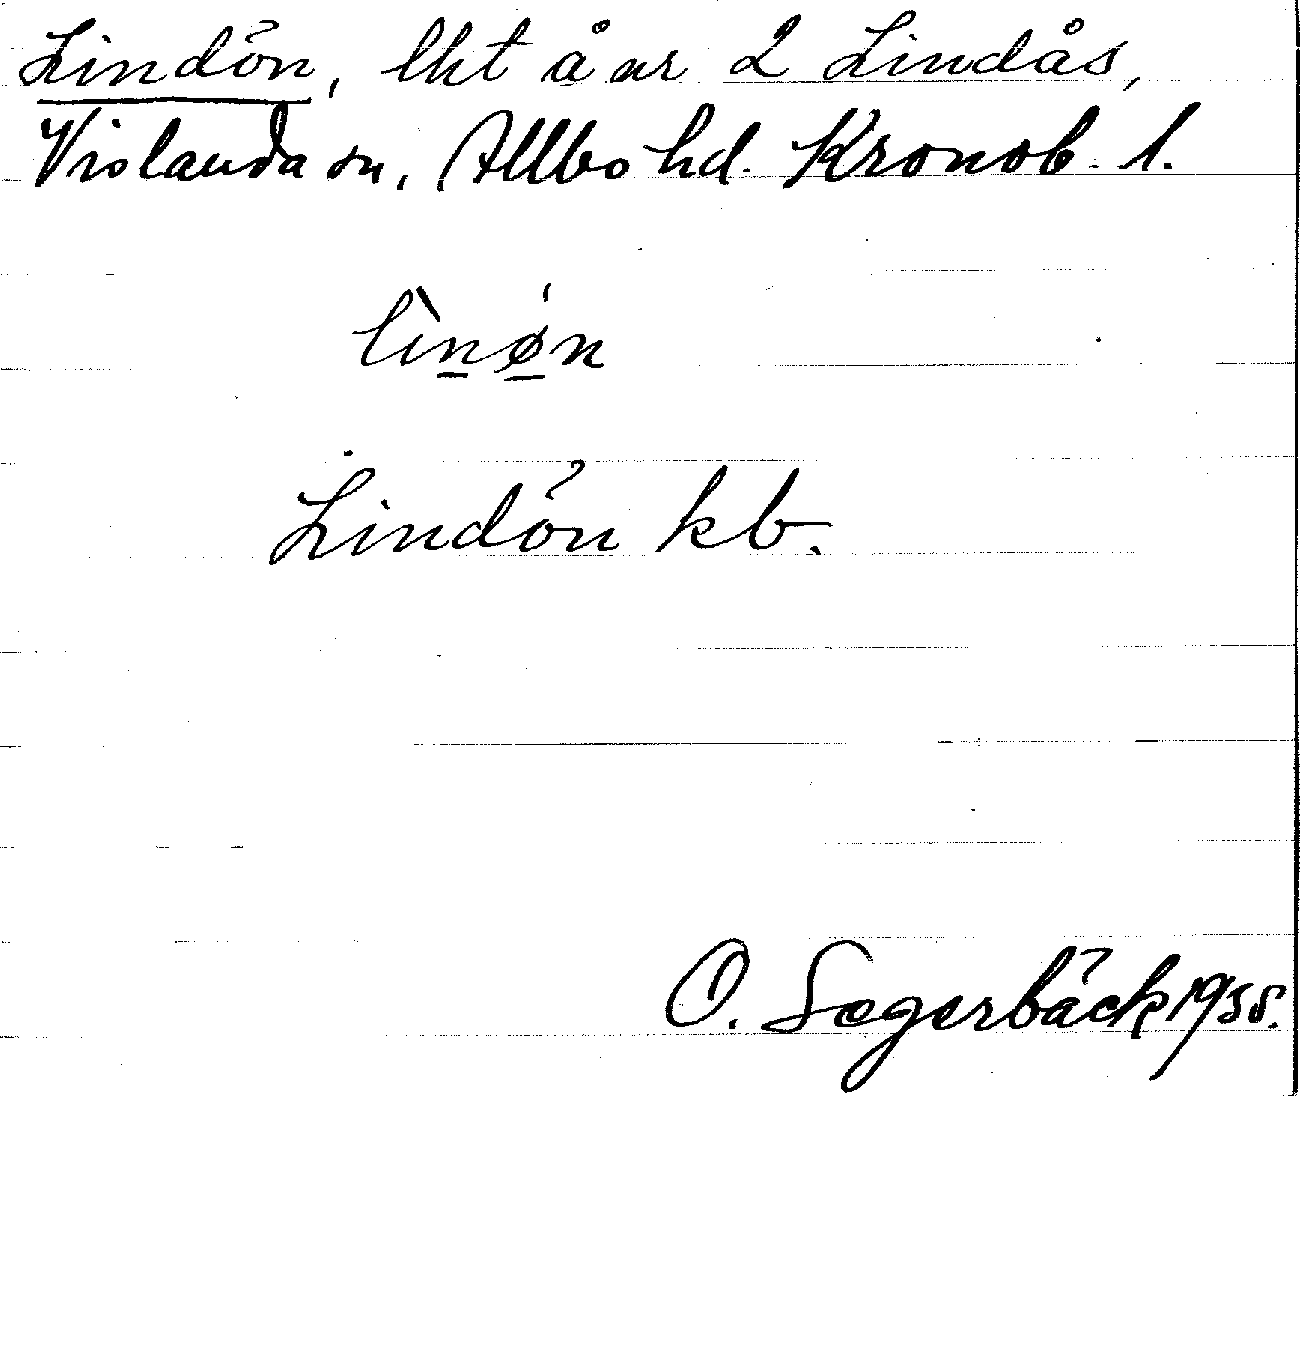 Lindön, lht å nr 2 Lindås,
Vislanda sn, Allbo hd. Kronob. l.
li`nø´n
Lindön kb.
O. Sagerbäck 1935.